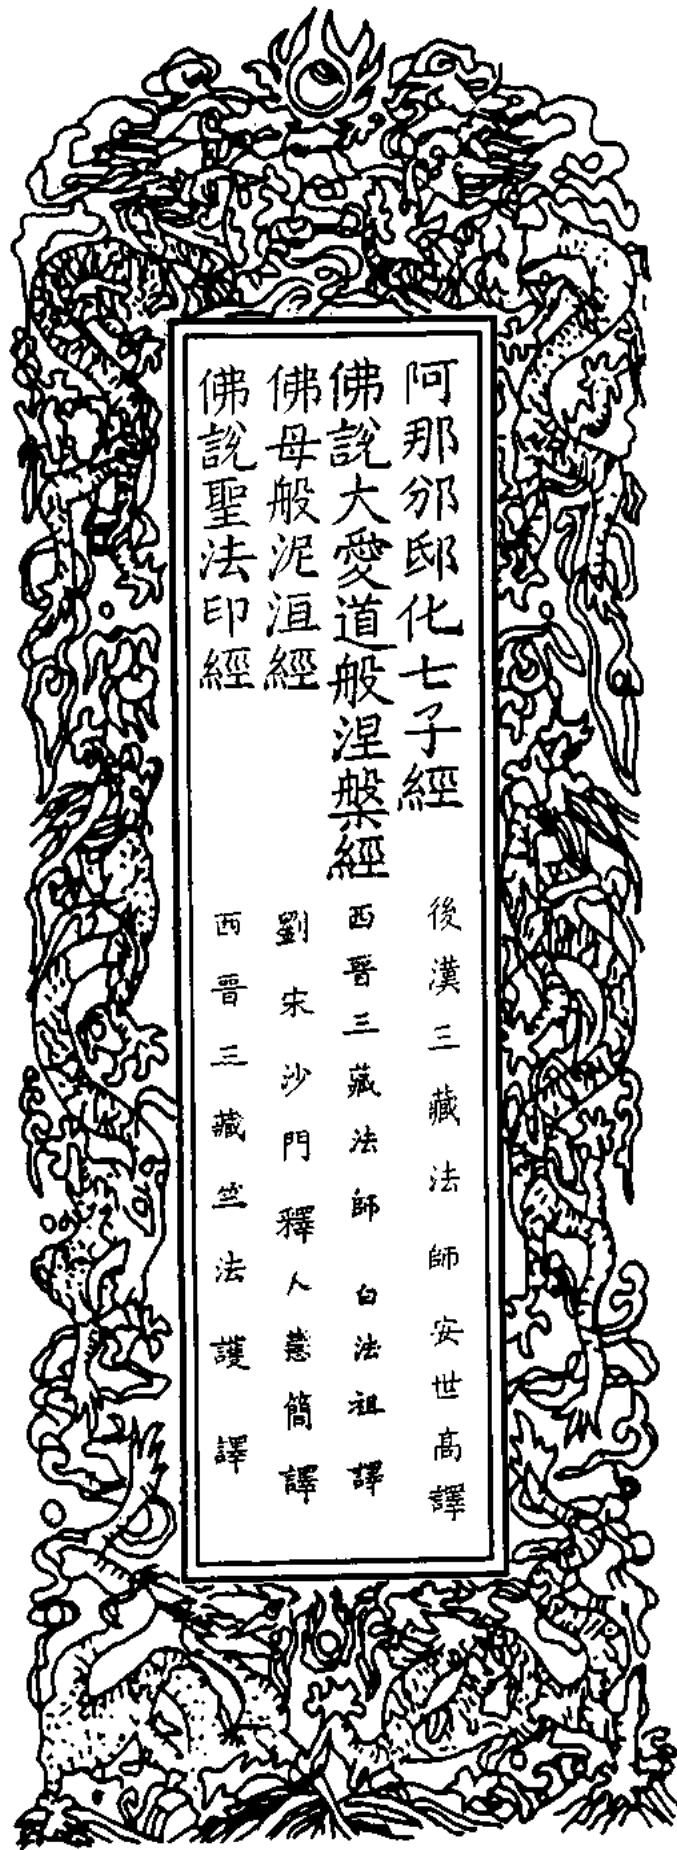 阿那邠邸化七子經 後漢三藏法師安世高譯
佛說大愛道般涅槃經 西晉三藏法師白法祖譯
佛母般泥洹經 劉宋沙門釋人慧簡譯
佛說聖法印經 西晉三藏竺法護譯